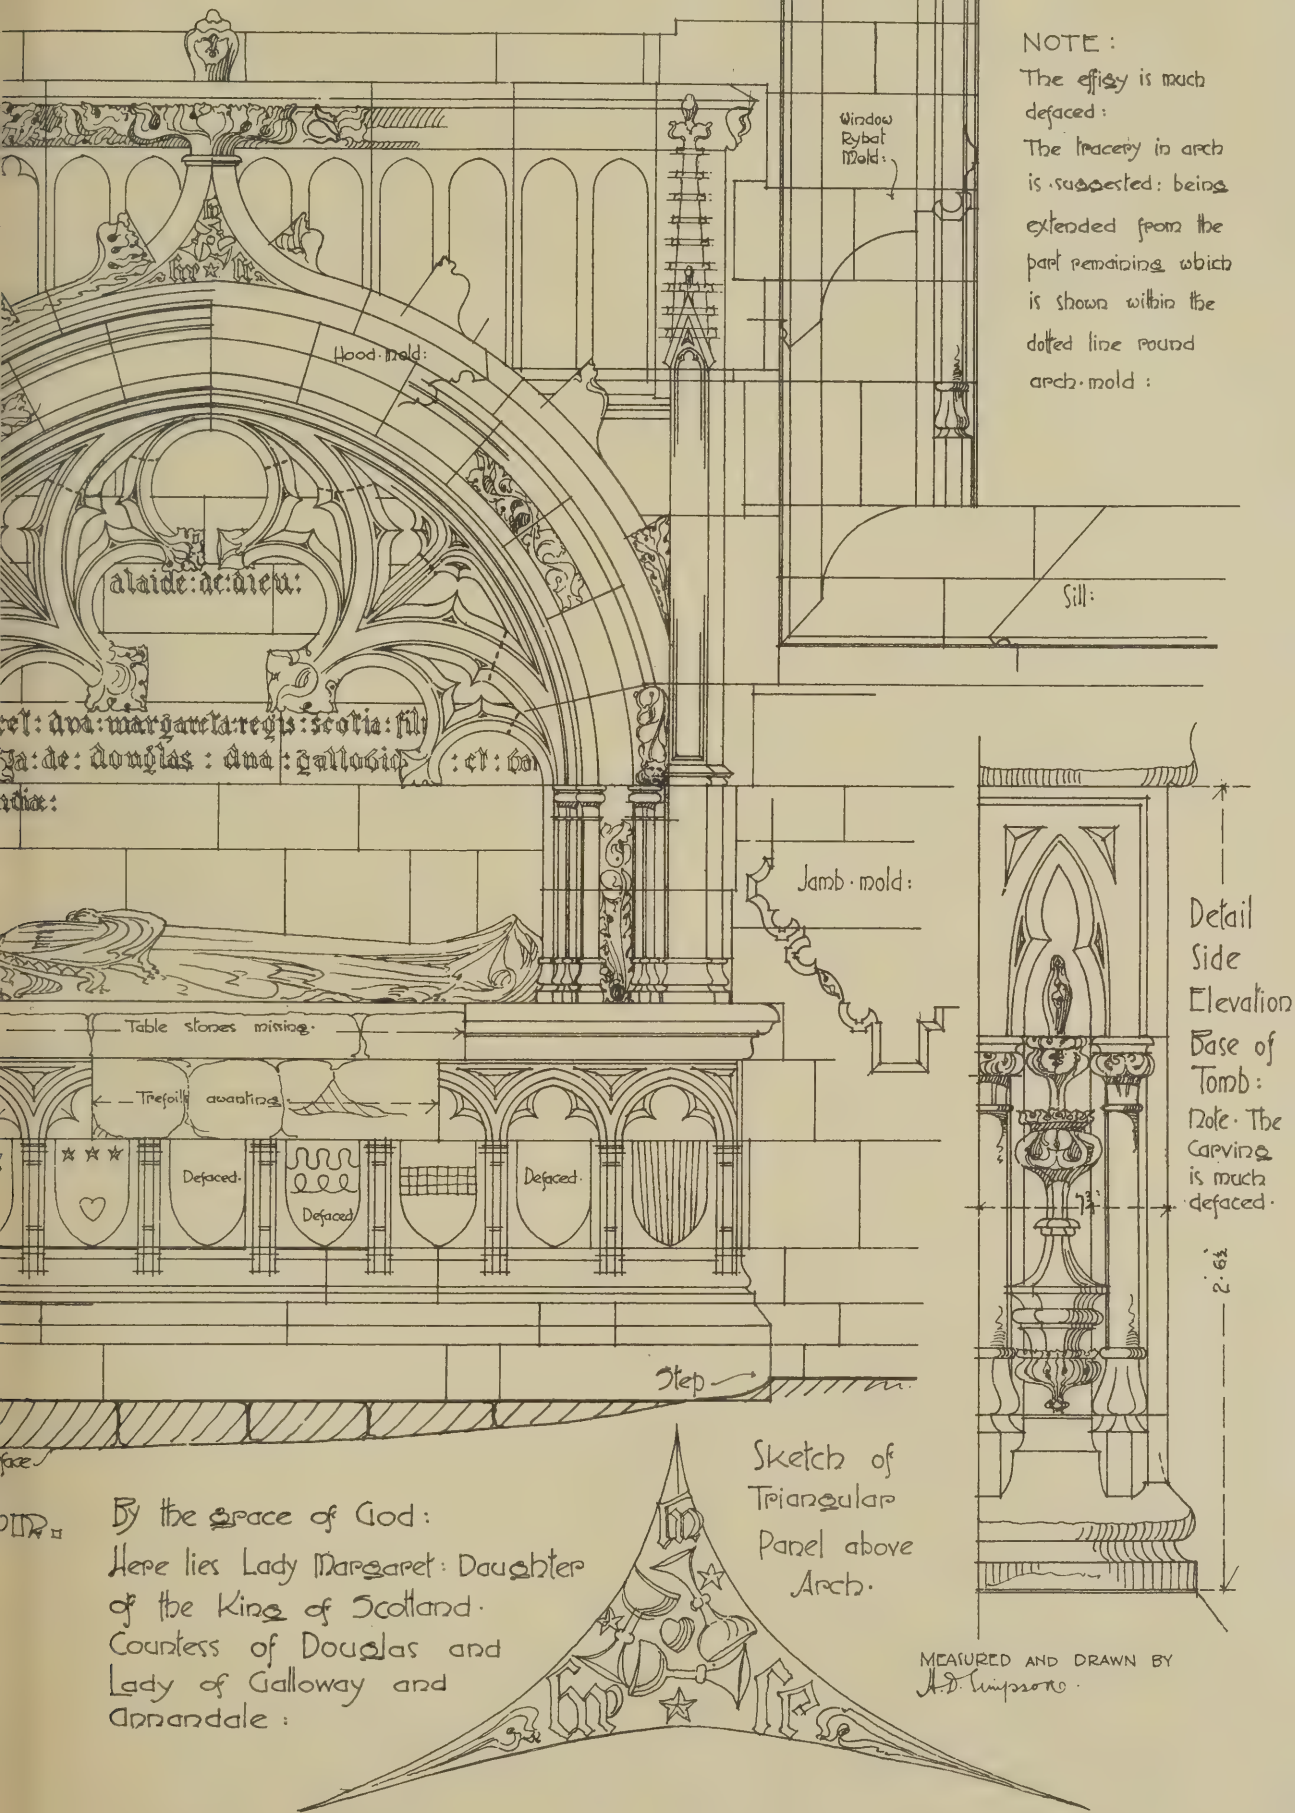 NOTE :
The effigy is much
defaced :
The tracery in arch
is suggested : being
extended from the
part remaining which
is shown within the
dotted line round
arch·mold :
Window
Rybat
Mold :
Hood·mold:
alaide:de:dieu:
dna:margareta:regis:scotia:fil
de:douglas : dna : : et :
Sill:
Jamb·mold:
Table stones missing·
Trefoils awanting
Defaced·
Defaced
Defaced·
Step
Detail
Side
Elevation
Base of
Tomb :
Note· The
Carving
is much
defaced·
7¾"
2'·6½"
By the grace of God :
Here lies Lady Margaret : Daughter
of the King of Scotland·
Countess of Douglas and
Lady of Galloway and
Annandale :
Sketch of
Triangular
Panel above
Arch·
MEASURED AND DRAWN BY
A.D. Simpson.